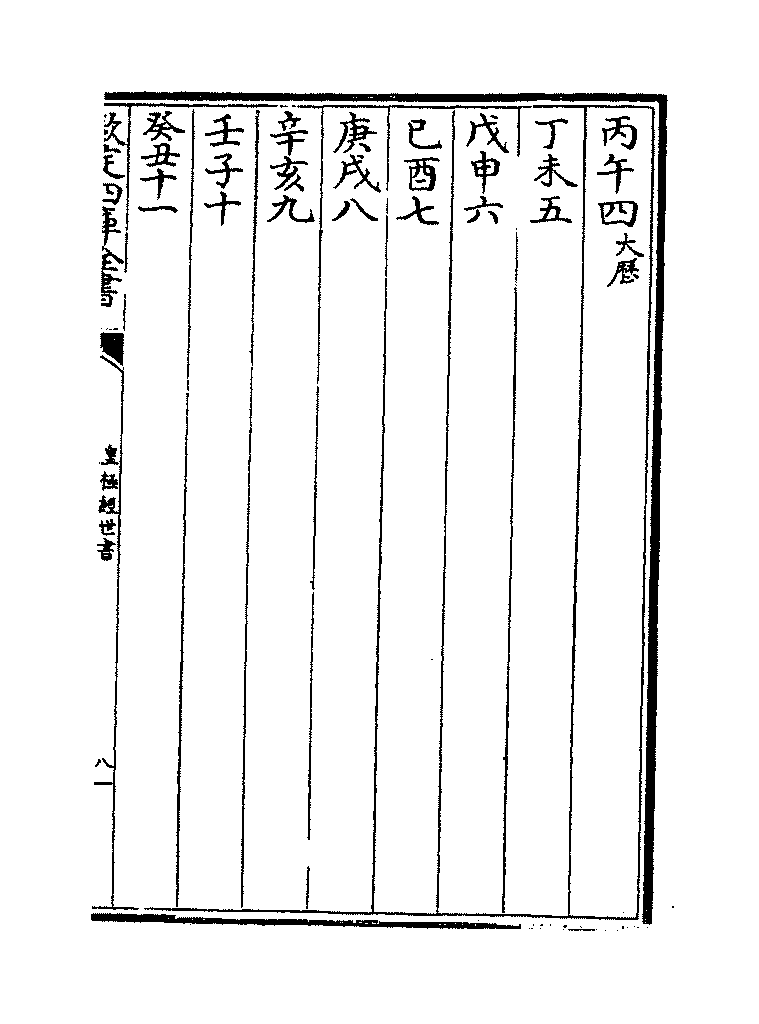 丙午四大歷
丁未五
戊申六
己酉七
庚戌八
辛亥九
壬子十
癸丑十一
欽定四庫全書
皇極經世書
八一